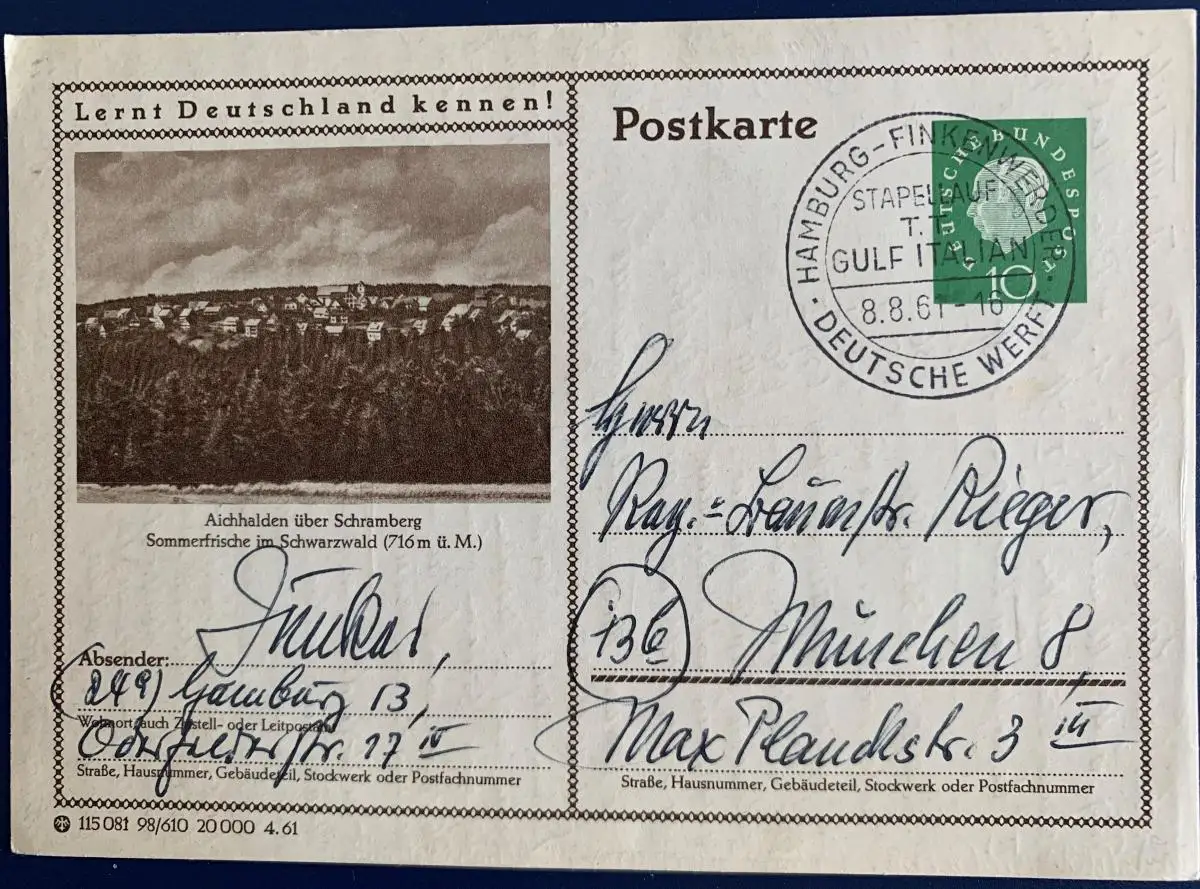 Lernt Deutschland kennen!
Aichhalden über Schramberg
Sommerfrische im Schwarzwald (716 m ü. M.)
Absender:
24a) Hamburg 13,
Wohnort, auch Zustell- oder Leitpostamt
Oderfelderstr. 17 IV
Straße, Hausnummer, Gebäudeteil, Stockwerk oder Postfachnummer
115 081 98/610 20 000 4. 61
Postkarte
DEUTSCHE BUNDESPOST
10
HAMBURG-FINKENWERDER
STAPELLAUF
T. T.
GULF ITALIAN
8.8.61-16
DEUTSCHE WERFT
Herrn
Reg.= Rieger,
13b München 8,
Max Planckstr. 3 III
Straße, Hausnummer, Gebäudeteil, Stockwerk oder Postfachnummer